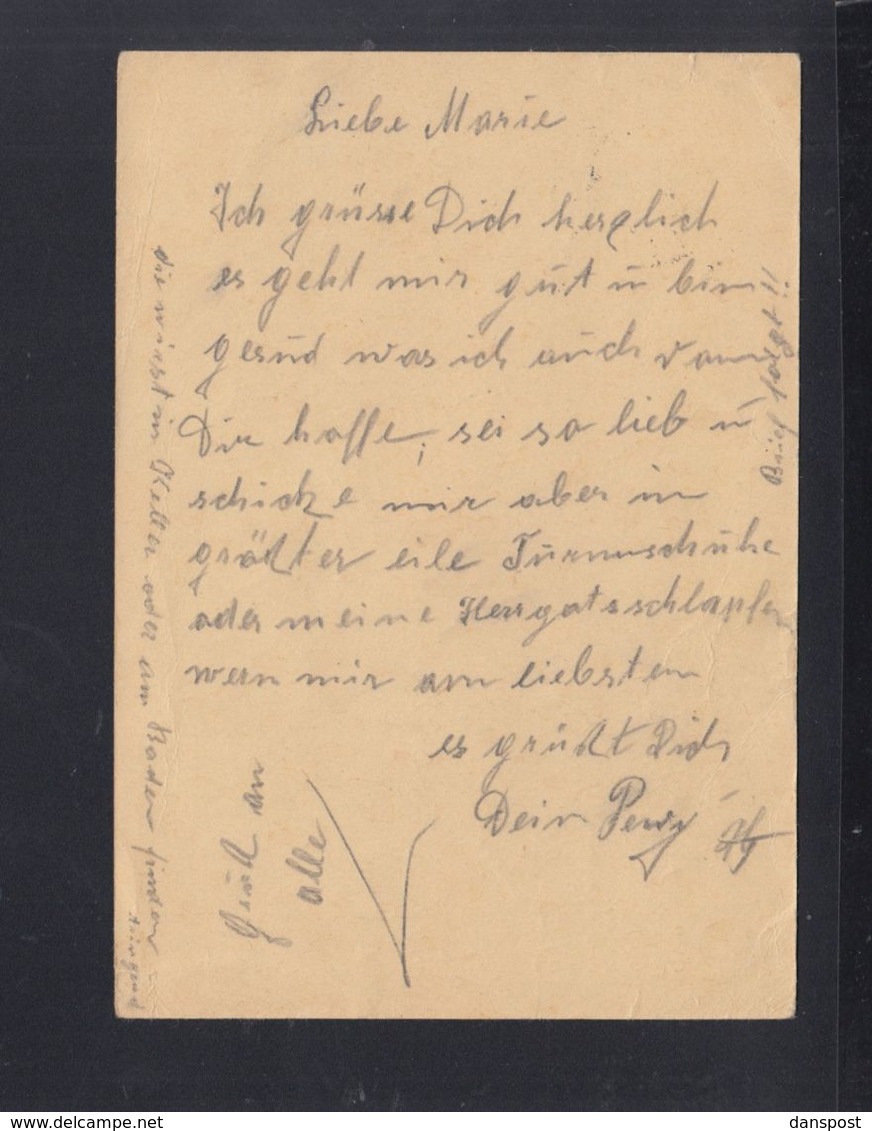 Liebe Marie
Ich grüsse Dich herzlich
es geht mir gut u bin
gesud was ich auch von
Dir hoffe, sei so lieb u
schicke mir aber in
größter eile Turnschuhe
oder meine Herrgotsschlapfen
wern mir am liebsten
es grüßt Dich
Dein
Gruß an
alle
die wirst im Keller oder am Boden finden
dringend
Brief folgt
www.delcampe.net
danspost